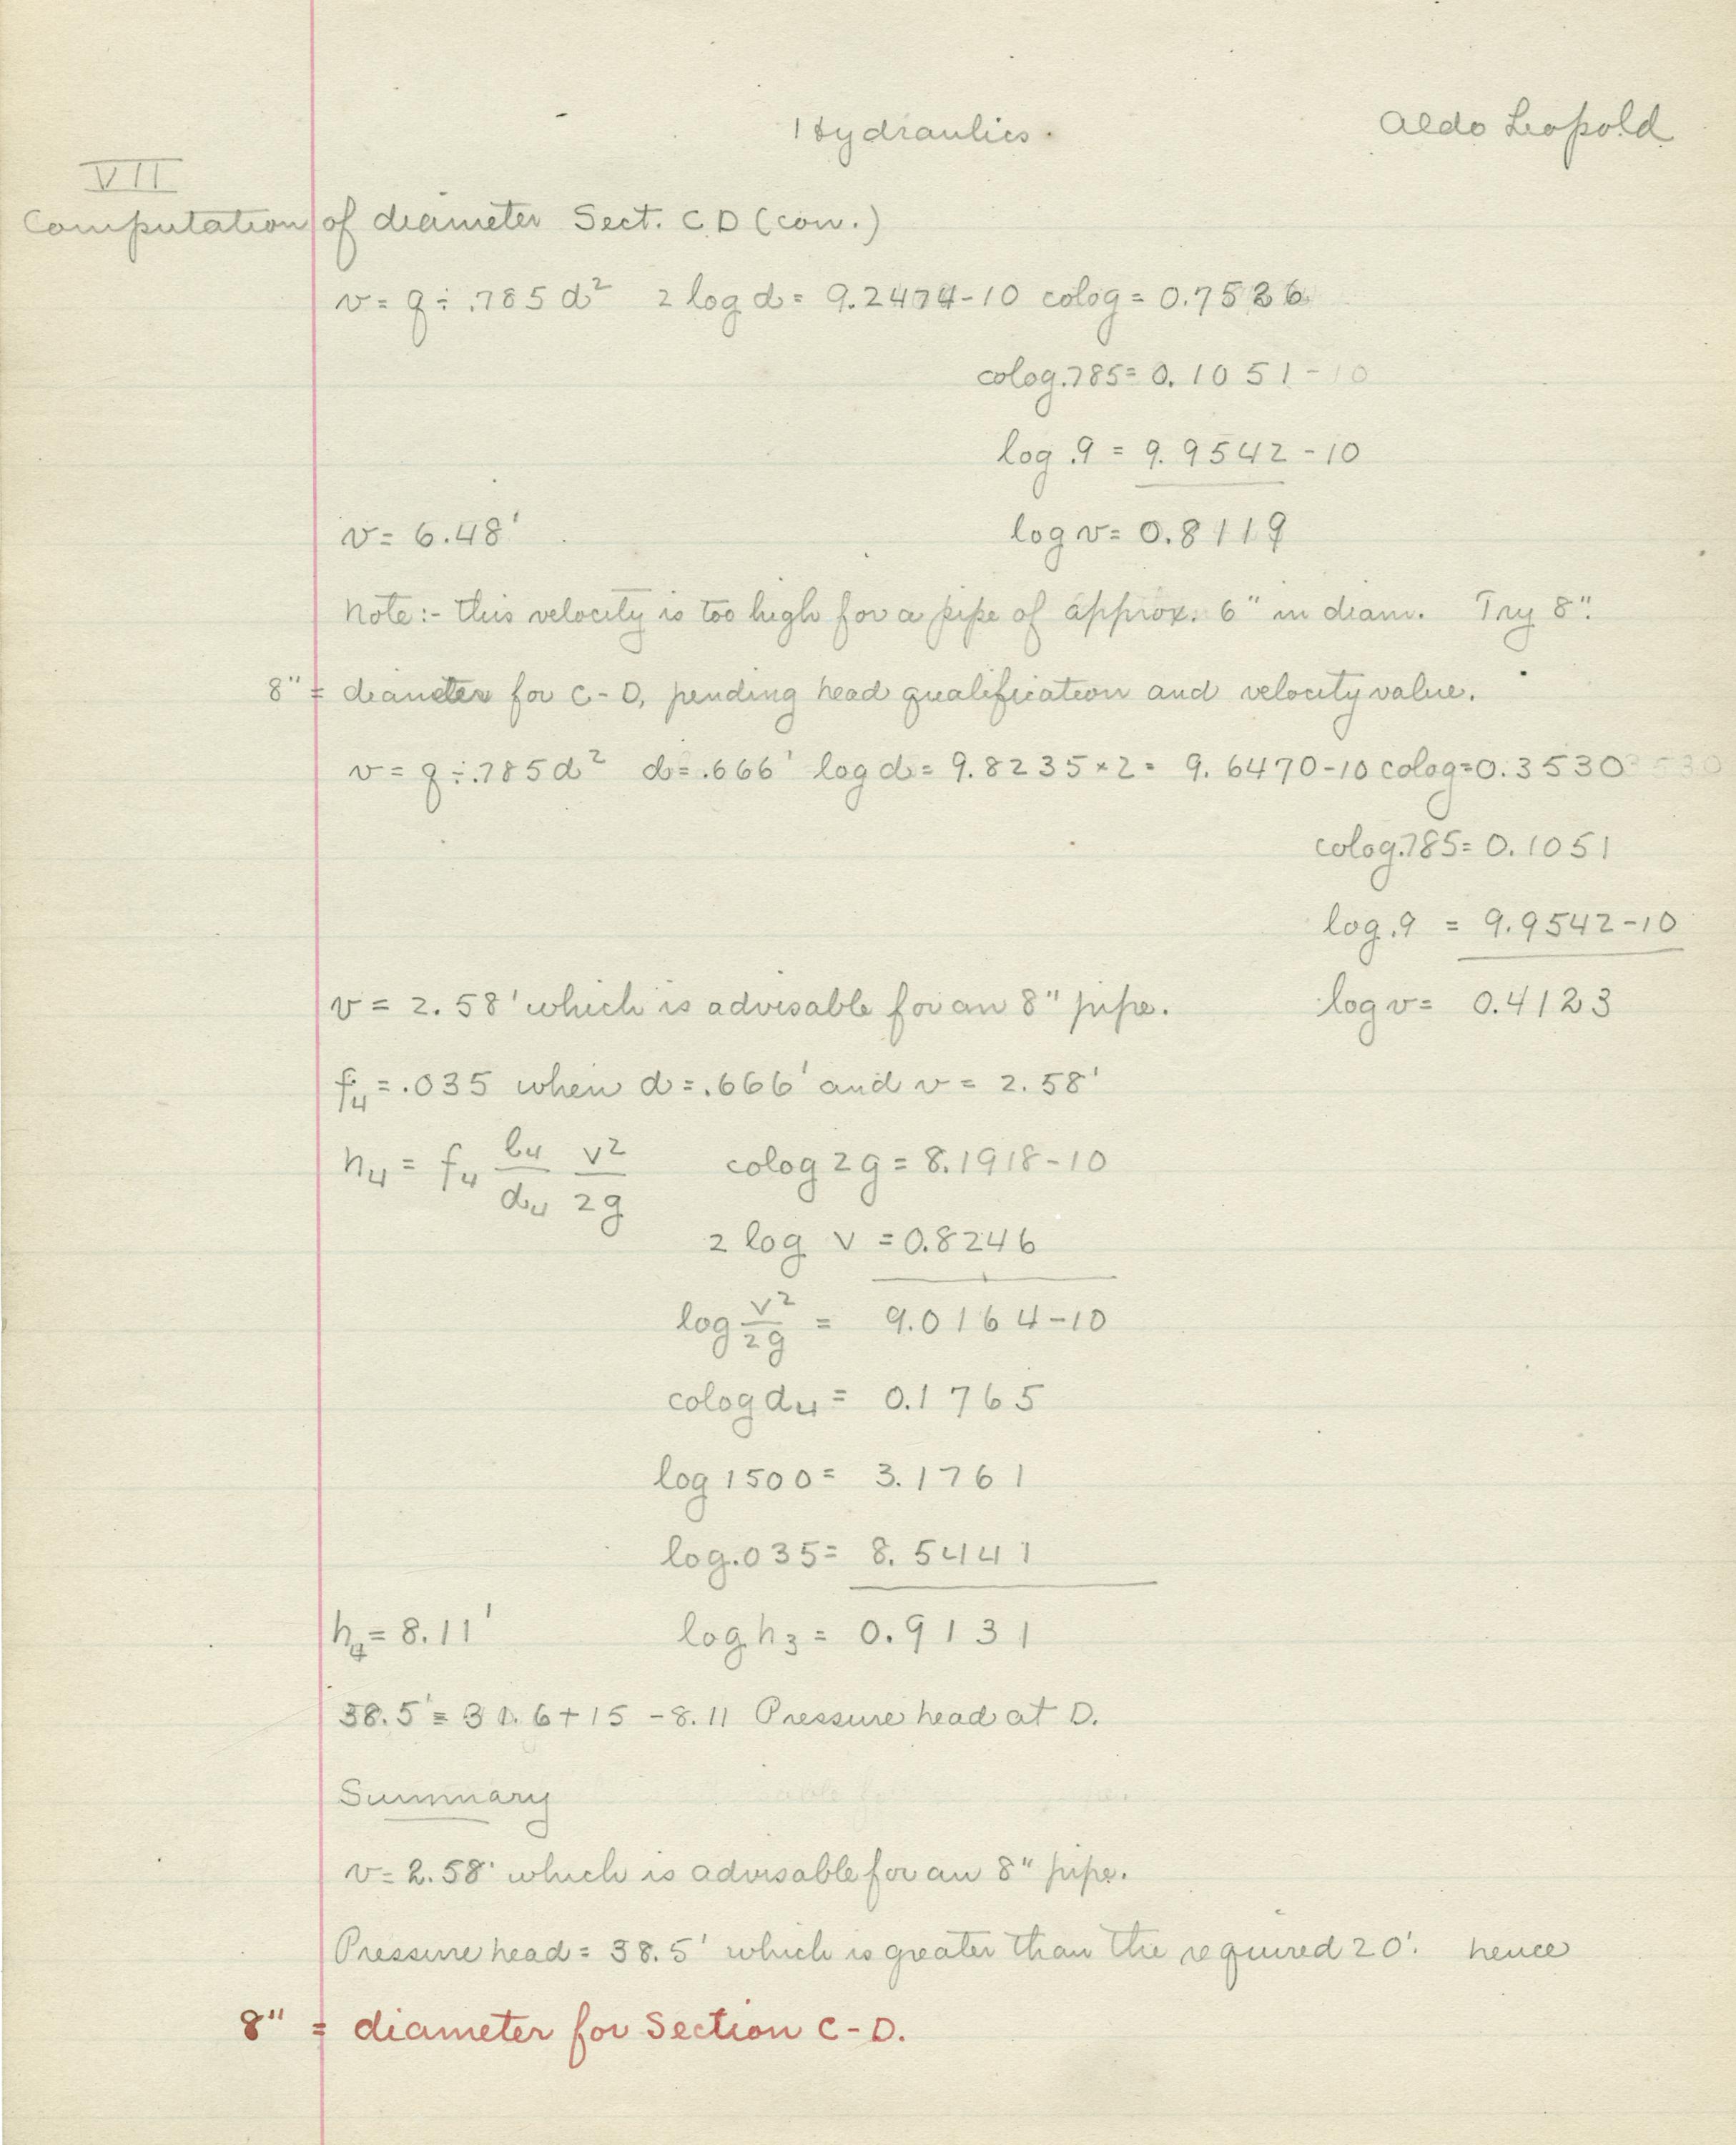 Hydraulics.
Aldo Leopold
VII
Computation of diameter Sect. C D (con.)
v = q ÷ .785 d² 2 log d = 9.2474-10 colog = 0.7526
colog .785 = 0.1051-10
log .9 = 9.9542-10
v = 6.48' log v = 0.8119
Note:- This velocity is too high for a pipe of approx. 6" in diam. Try 8".
8" = diameter for C-D, pending head qualification and velocity value.
v = q ÷ .785 d² d = .666' log d = 9.8235 × 2 = 9.6470-10 colog = 0.3530
colog .785 = 0.1051
log .9 = 9.9542-10
v = 2.58' which is advisable for an 8" pipe. log v = 0.4123
f₄ = .035 when d = .666' and v = 2.58'
h₄ = f₄ l₄/d₄ v²/2g colog 2g = 8.1918-10
2 log v = 0.8246
log v²/2g = 9.0164-10
colog d₄ = 0.1765
log 1500 = 3.1761
log .035 = 8.5441
h₄ = 8.11' log h₃ = 0.9131
38.5' = 31.6 + 15 - 8.11 Pressure head at D.
Summary
v = 2.58' which is advisable for an 8" pipe.
Pressure head = 38.5' which is greater than the required 20'. hence
8" = diameter for Section C-D.